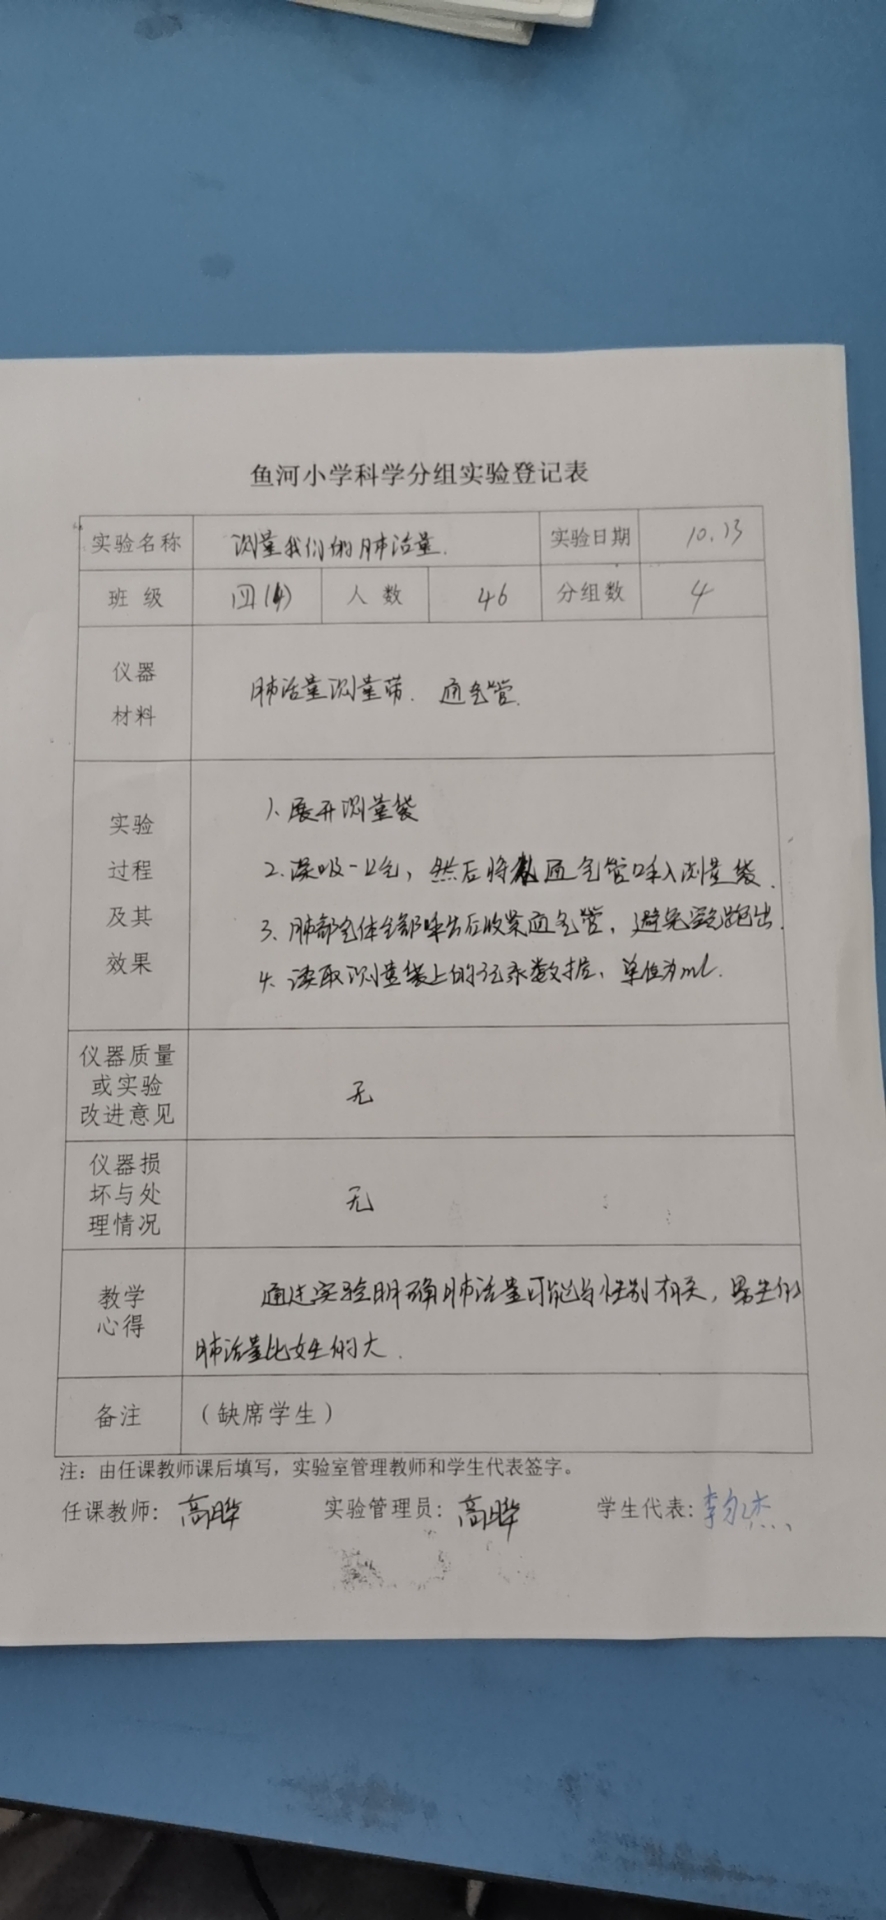 鱼河小学科学分组实验登记表
实验名称 测量我们的肺活量. 实验日期 10.13
班 级 四(4) 人 数 46 分组数 4
仪器
材料
肺活量测量带. 通气管.
实验
过程
及其
效果
1.展开测量袋
2.深吸一口气，然后将 通气管呼入测量袋.
3.肺部气体全部呼出后收紧通气管，避免 跑出.
4.读取测量袋上的 数据，单位为ml.
仪器质量
或实验
改进意见
无
仪器损
坏与处
理情况
无
教学
心得
通过实验明确肺活量可能与性别有关，男生的
肺活量比女生的大.
备注 （缺席学生）
注：由任课教师课后填写，实验室管理教师和学生代表签字。
任课教师：高晔 实验管理员：高晔 学生代表：李 杰